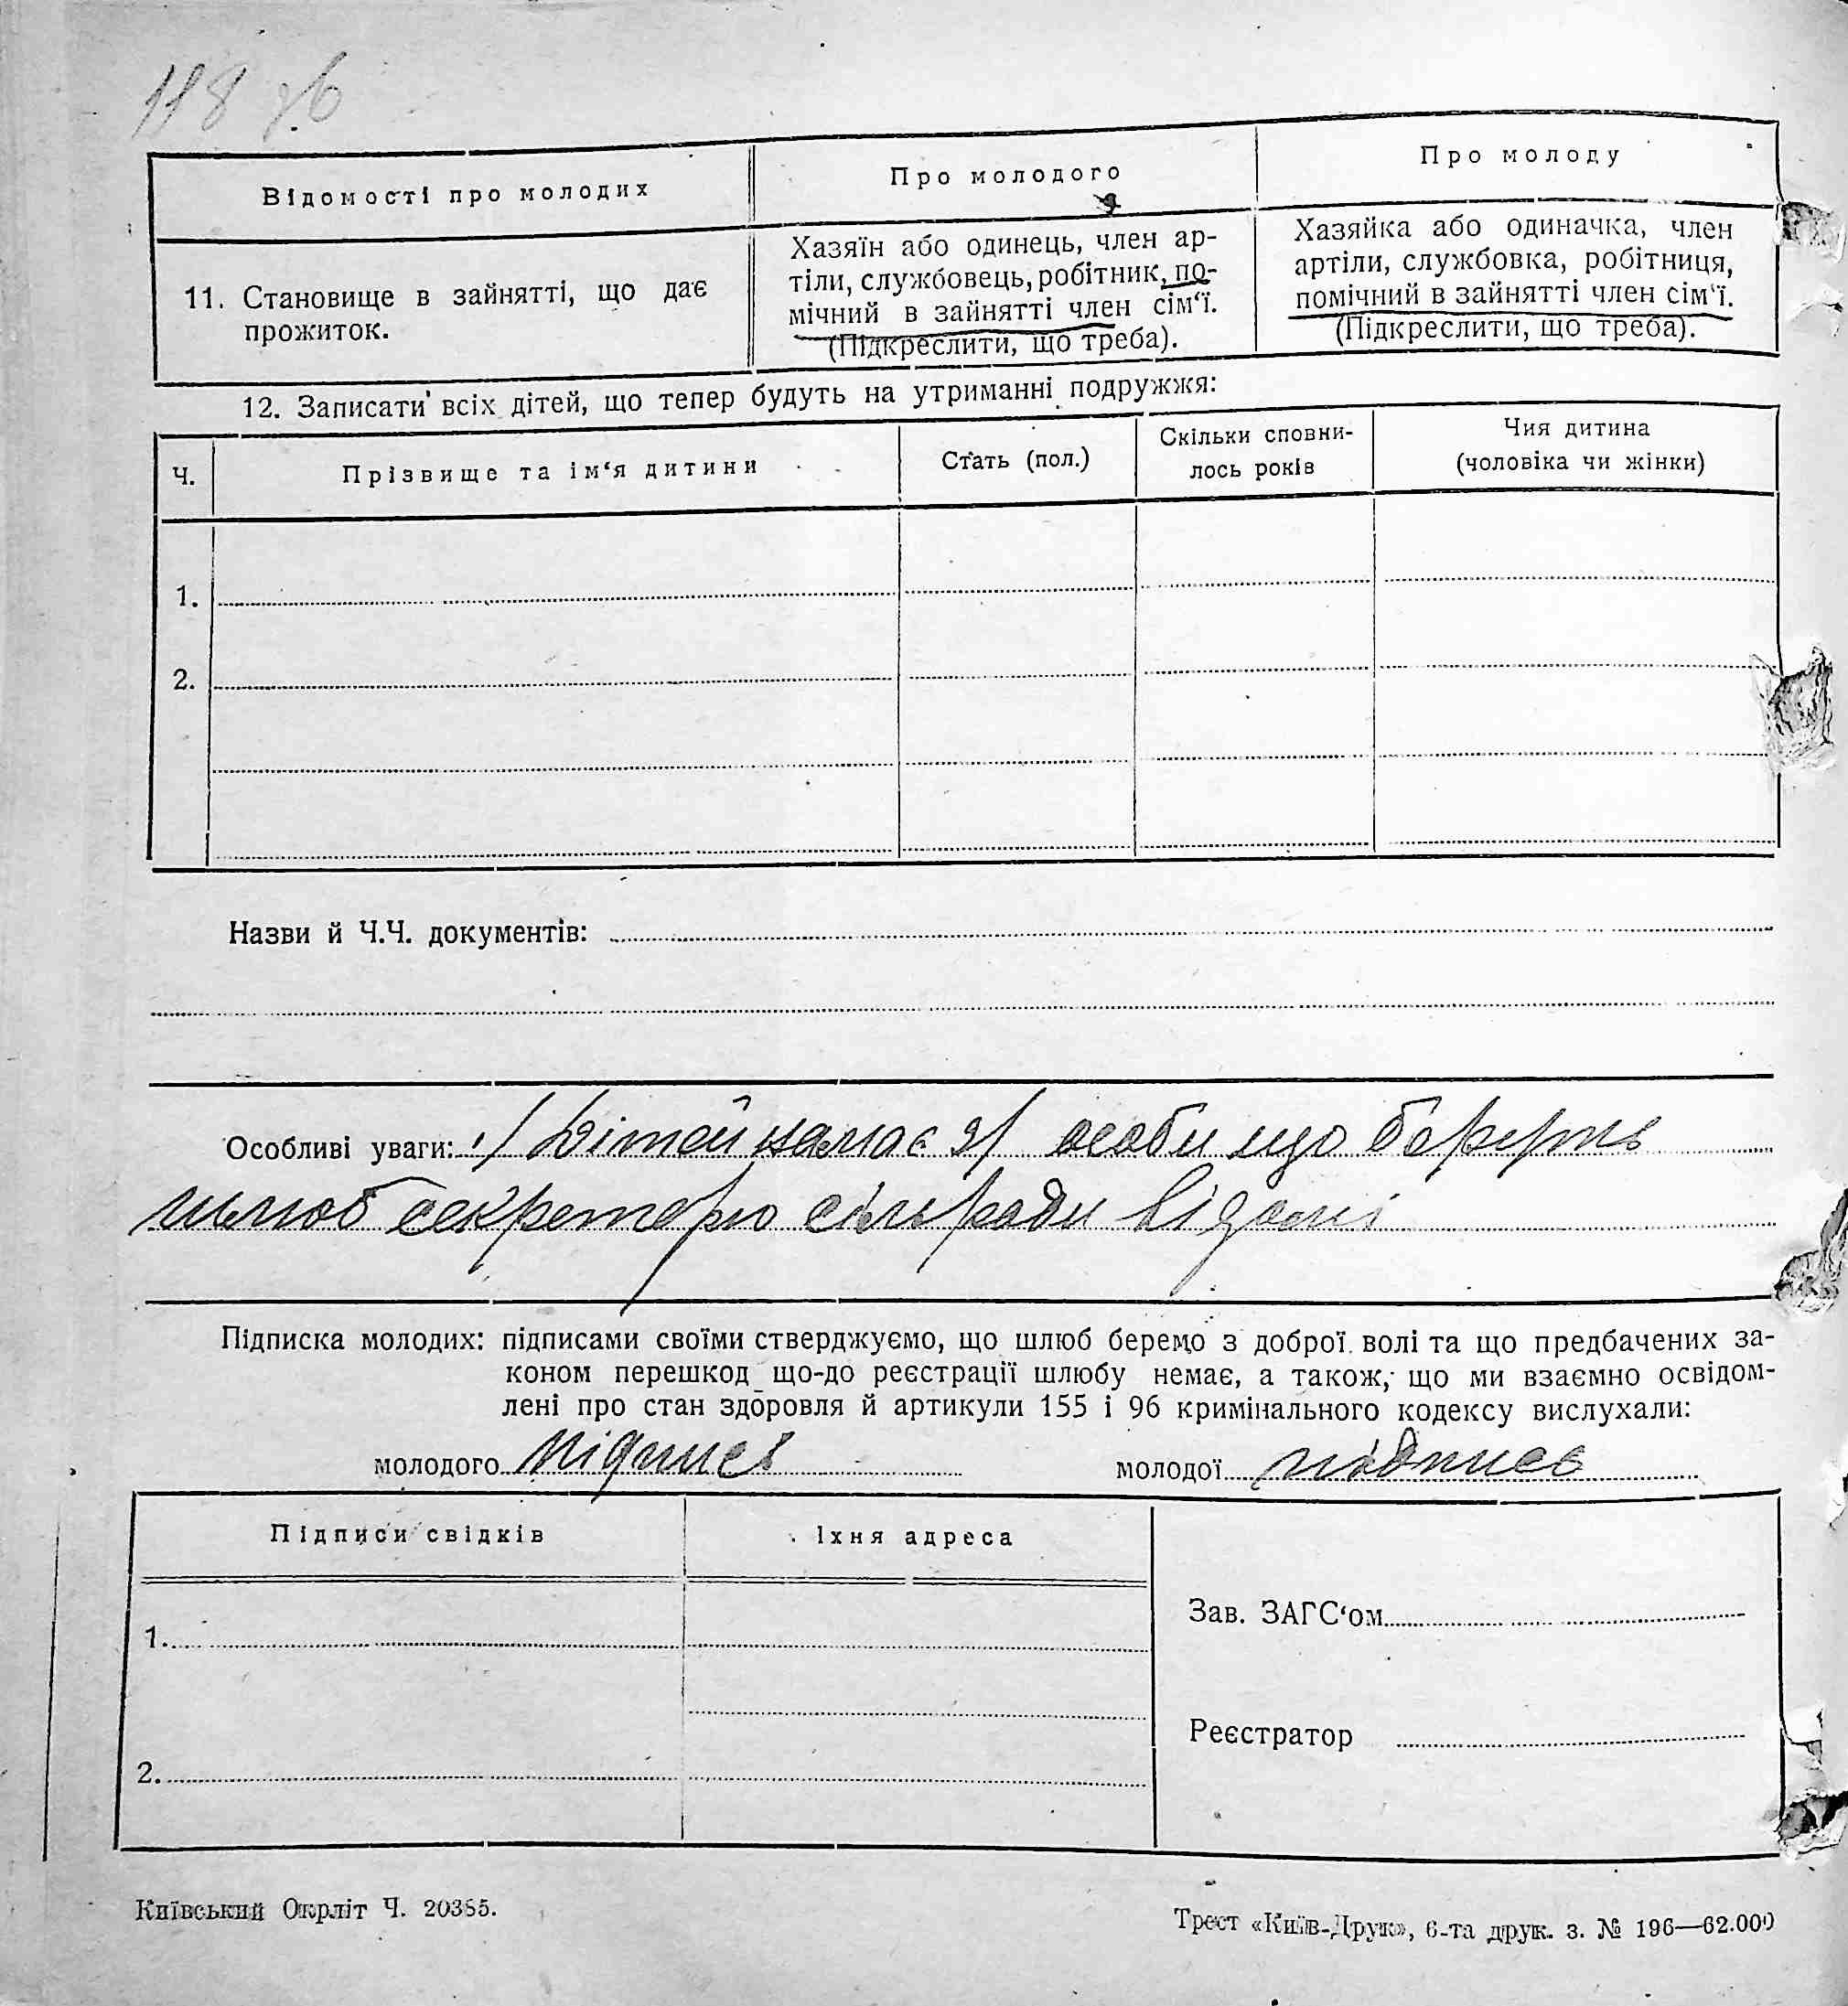 118 зв
Відомості про молодих
Про молодого
Про молоду
11. Становище в зайнятті, що дає
прожиток.
Хазяїн або одинець, член ар-
тіли, службовець, робітник, по-
мічний в зайнятті член сім‘ї.
(Підкреслити, що треба).
Хазяйка або одиначка, член
артіли, службовка, робітниця,
помічний в зайнятті член сім‘ї.
(Підкреслити, що треба).
12. Записати всіх дітей, що тепер будуть на утриманні подружжя:
Ч.
Прізвище та ім‘я дитини
Стать (пол.)
Скільки сповни-
лось років
Чия дитина
(чоловіка чи жінки)
1.
2.
Назви й Ч.Ч. документів:
Особливі уваги: 1/ Дітей намає 2/ особи що беруть
шлюб секретарю сільради відомі
Підписка молодих: підписами своїми стверджуємо, що шлюб беремо з доброї волі та що предбачених за-
коном перешкод що-до реєстрації шлюбу немає, а також, що ми взаємно освідом-
лені про стан здоровля й артикули 155 і 96 кримінального кодексу вислухали:
молодого підпись молодої підпись
Підписи свідків
Їхня адреса
1.
2.
Зав. ЗАГС‘ом
Реєстратор
Київський Окрліт Ч. 20385.
Трест «Київ-Друк», 6-та друк. з. № 196—62.000